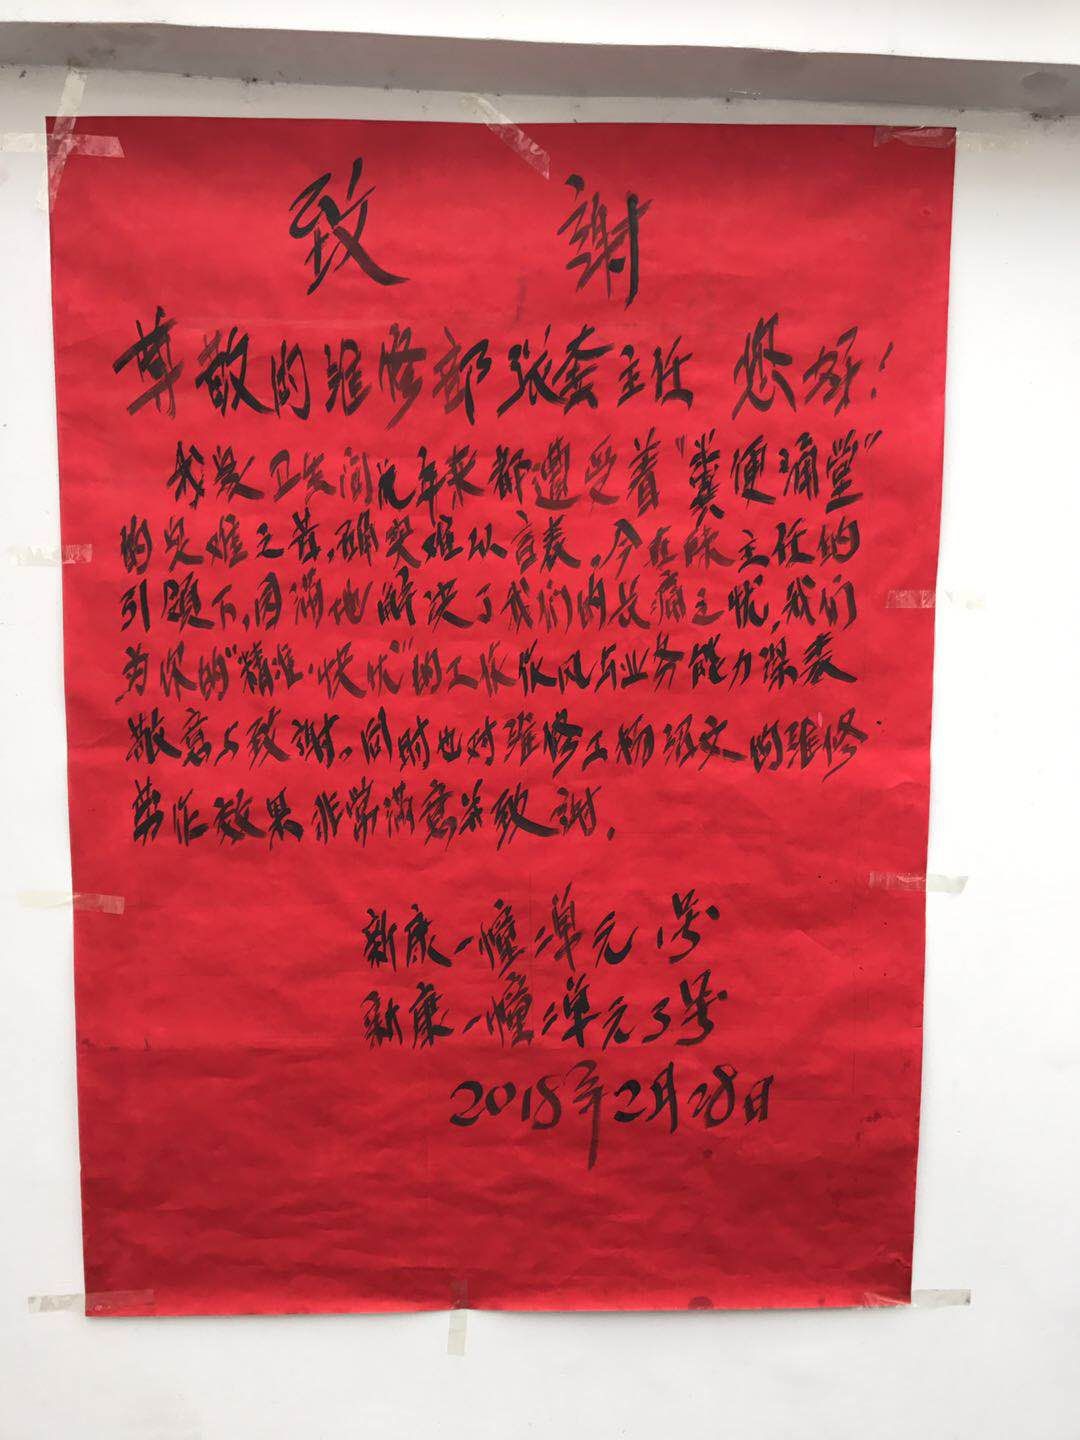 致 謝
尊敬的维修部张奎主任 您好!
我家卫生间几年来都遭受着"粪便涌堂"
的灾难之苦,确实难以言表。今在张主任的
引领下,圆满地解决了我们的长痛之忧,我们
为你的"精准·快优"的工作作风与业务能力深表
敬意与致谢。同时也对维修工杨绍文的维修
劳作效果非常满意并致謝。
新康一幢二单元1号
新康一幢二单元3号
2018年2月28日